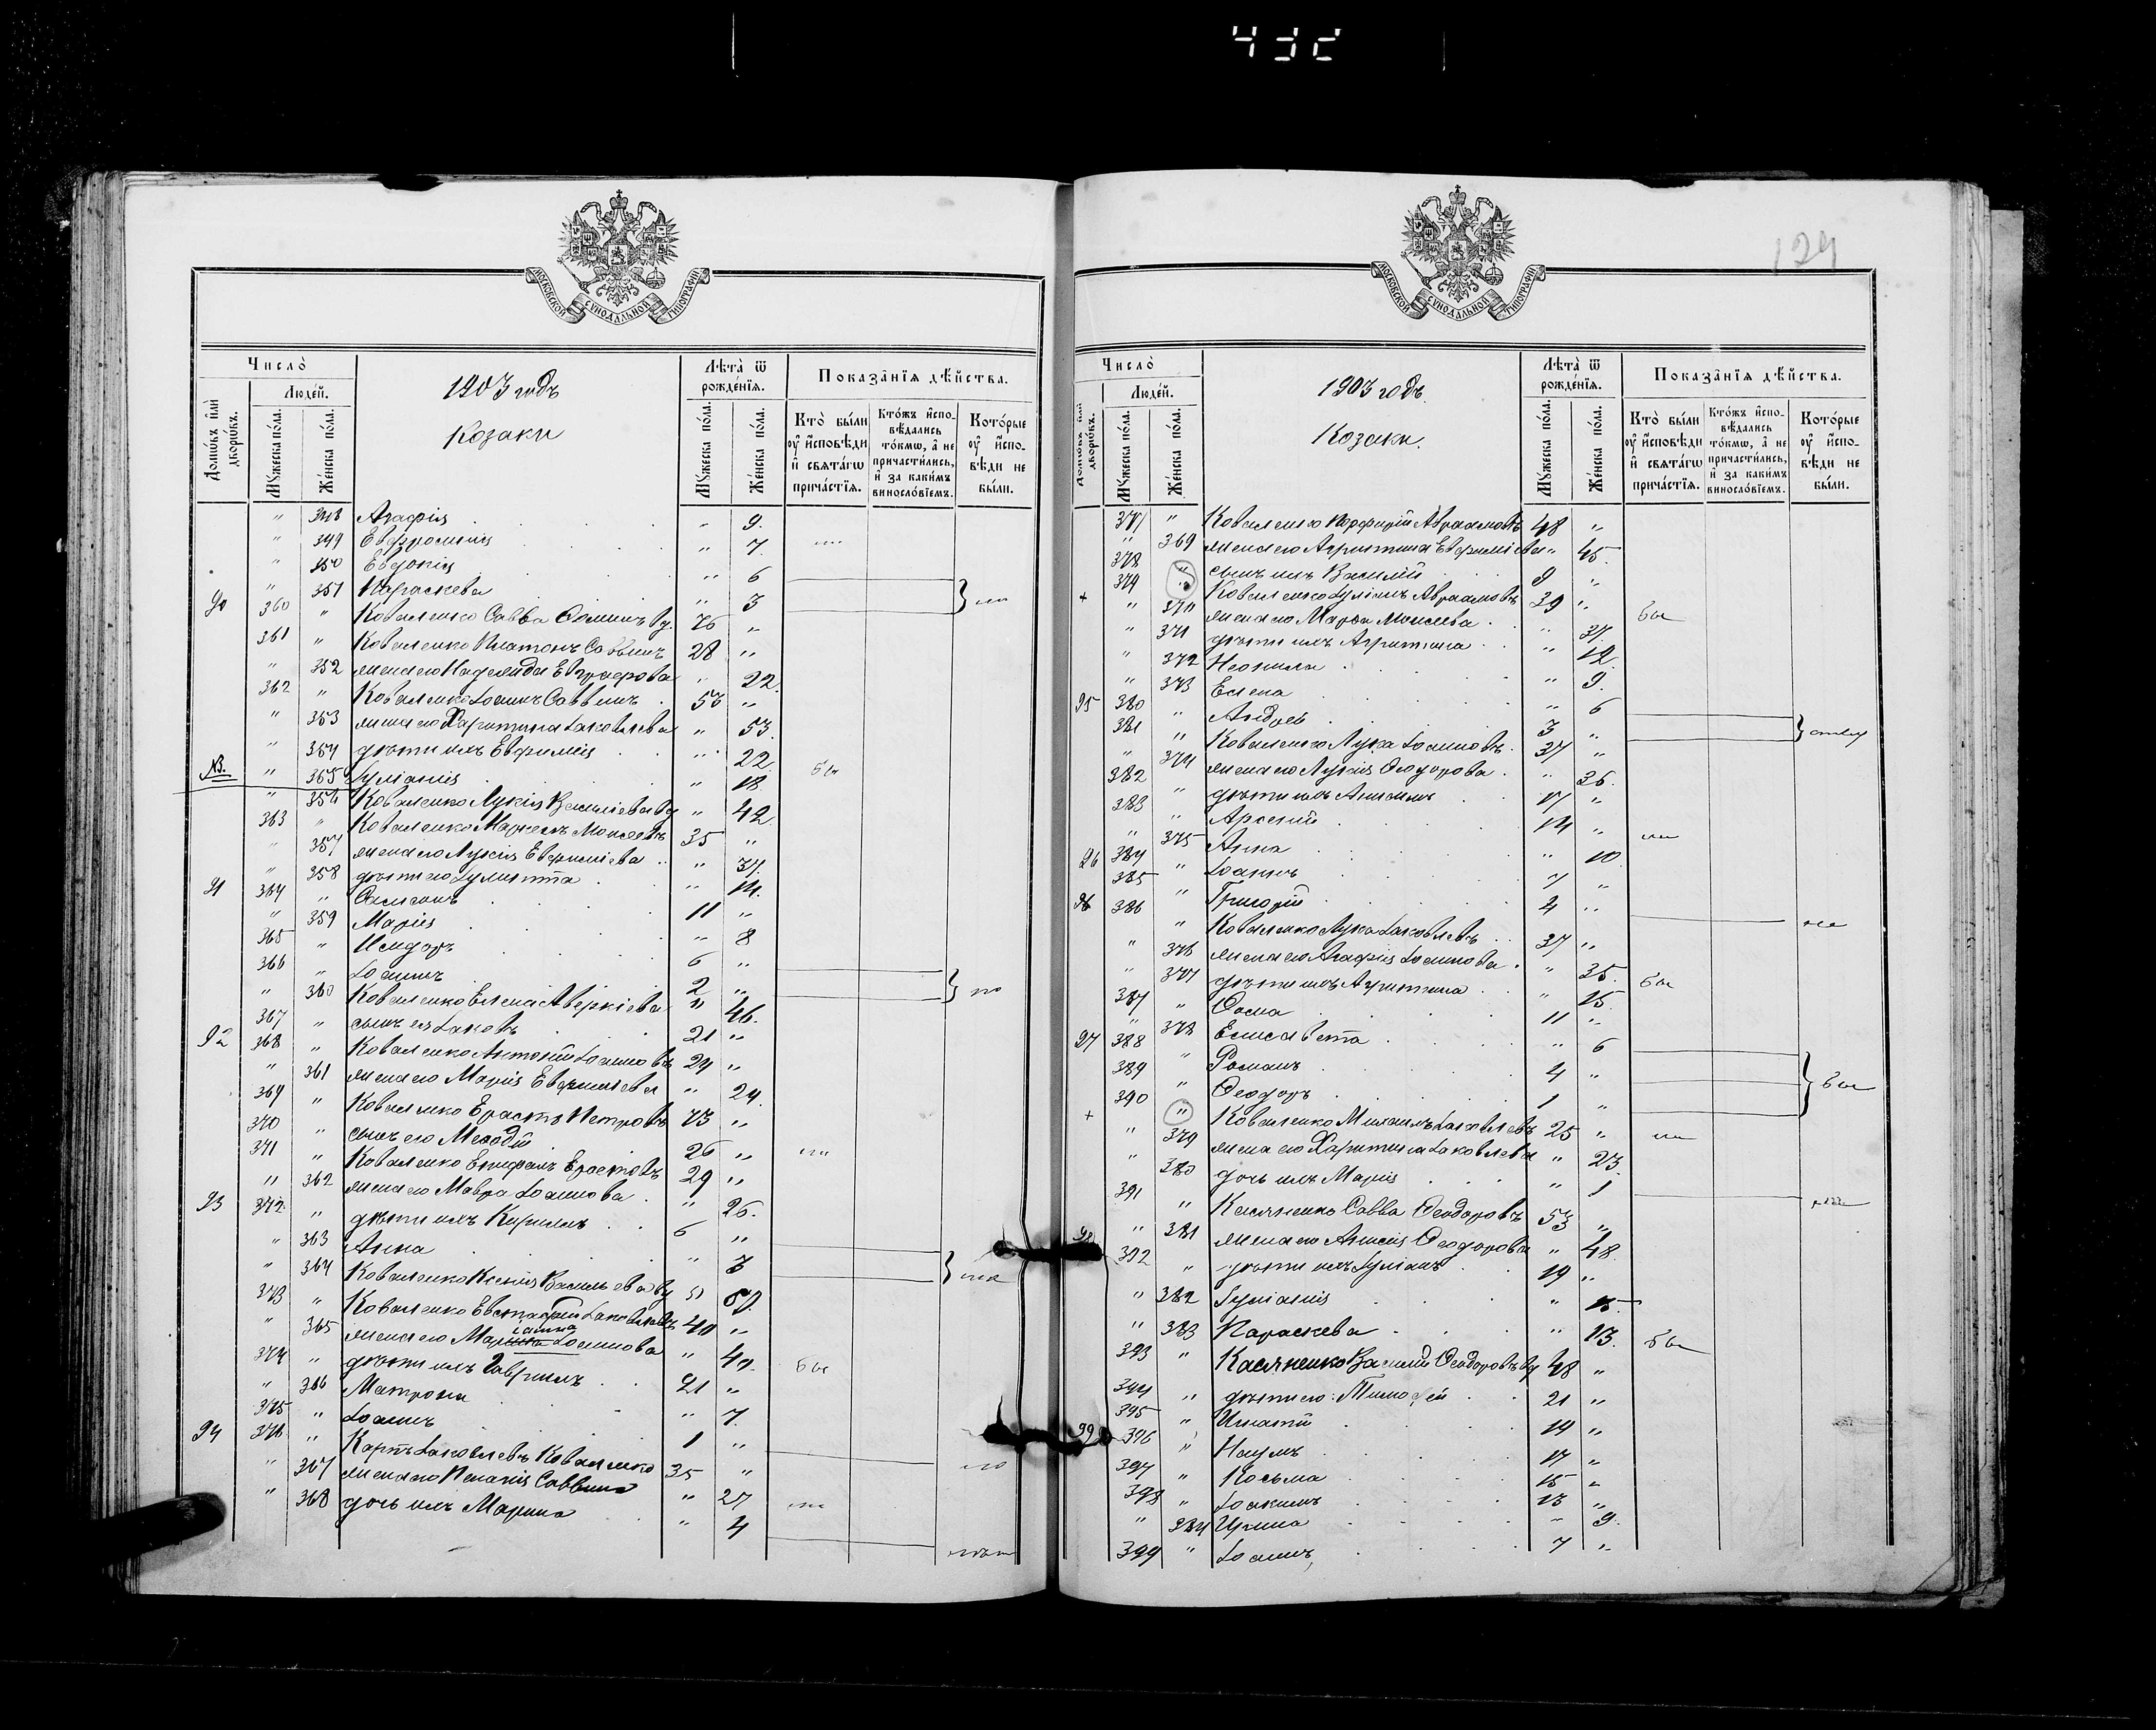 432
МОСКОВСКОЙ СѴНОДАЛЬНОЙ ТИПОГРАФІИ
Число̀
Людей.
Домѡвъ и҆лѝ дворѡвъ.
Мꙋжеска пола.
Женска пола.
1903 годъ
Козаки
Лѣта̀ ѿ рожденїѧ.
Мꙋжеска пола.
Женска пола.
Показанїѧ дѣйства.
Кто̀ были ᲂу҆ и҆сповѣди и҆ свѧтагѡ причастїѧ.
Ктожъ и҆сповѣдались токмѡ, а҆ не причастились, и҆ за какимъ винословїемъ.
Которые ᲂу҆ и҆сповѣди не были.
" 348 Агафія " 9.
" 349 Евфросинія " 7
" 350 Евдокія " 6
" 351 Параскева " 3
90 360 " Коваленко Савва Ѳоминъ вд. 76 "
361 " Коваленко Платонъ Саввинъ 28 "
" 352 жена его Надежда Евграфова " 22.
362 " Коваленко Іоаннъ Саввинъ 56 "
" 353 жена его Харитина Іаковлева " 53.
" 354 дѣти ихъ Евфимія " 22
" 365 Іуліанія " 18
" 356 Коваленко Лукія Васильева вд " 42
363 " Коваленко Маркелъ Моисеевъ 35 "
" 357 жена его Лукія Евфиміева " 37.
" 358 дѣти его Іулитта " 14.
91 364 " Самсонъ 11 "
" 359 Марія " 8
365 " Исидоръ 6 "
366 " Іоаннъ 2 "
" 360 Коваленко Елена Аверкіева " 46.
367 " сынъ ея Іаковъ 21 "
92 368 " Коваленко Антоній Іоанновъ 24 "
" 361 жена его Марія Евфиміева " 24.
369 " Коваленко Ерастъ Петровъ 73 "
370 " сынъ его Меѳодій 26 "
371 " Коваленко Епифанъ Ерастовъ 29 "
" 362 жена его Мавра Іоаннова " 26.
93 372 " дѣти ихъ Кириллъ 6 "
" 363 Анна " 3
" 364 Коваленко Ксенія Васильева вд "
373 " Коваленко Евстафій Іаковлевъ 40 "
" 365 жена его Іоаннова " 40.
374 " дѣти ихъ Гавріилъ 21 "
" 366 Матрона " 7.
375 " Іоаннъ 1 "
94 376 " Карпъ Іаковлевъ Коваленко 35 "
" 367 жена его Пелагія Саввина " 27
" 368 дочь ихъ Марина " 4
129
МОСКОВСКОЙ СѴНОДАЛЬНОЙ ТИПОГРАФІИ
Число̀
Людей.
Домѡвъ и҆лѝ дворѡвъ.
Мꙋжеска пола.
Женска пола.
1903 годъ.
Козаки.
Лѣта̀ ѿ рожденїѧ.
Мꙋжеска пола.
Женска пола.
Показанїѧ дѣйства.
Кто̀ были ᲂу҆ и҆сповѣди и҆ свѧтагѡ причастїѧ.
Ктожъ и҆сповѣдались токмѡ, а҆ не причастились, и҆ за какимъ винословїемъ.
Которые ᲂу҆ и҆сповѣди не были.
377 " Коваленко Порфирій Авраамовъ 48 "
" 369 жена его Агрипина Евфиміева " 45.
378 " сынъ ихъ Василій 9 "
379 " Коваленко Іуліанъ Авраамовъ 39 "
" 370 жена его Марѳа Моисеева " 37.
" 371 дѣти ихъ Агрипина " 12
" 372 Неонила " 9.
" 373 Елена " 6
95 380 " Андрей 3 "
381 " Коваленко Лука Іоанновъ 37 "
" 374 жена его Лукія Ѳеодорова " 36.
382 " дѣти ихъ 17 "
383 " Арсеній 14 "
" 375 Анна " 10
384 " Іоаннъ 7 "
385 " Григорій 4 "
96 386 " Коваленко Лука Іаковлевъ 37 "
" 376 жена его Агафія Іоаннова " 35.
" 377 дѣти ихъ Агрипина " 15
387 " Ѳома 11 "
" 378 Елисавета " 6
97 388 " Романъ 4 "
389 " Ѳеодоръ 1 "
390 " Коваленко Михаилъ Іаковлевъ 25 "
" 379 жена его Харитина Іаковлева " 23.
" 380 дочь ихъ Марія " 1
391 " Касяненко Савва Ѳеодоровъ 53 "
" 381 жена его Анисія Ѳеодорова " 48
98 392 " дѣти ихъ Іуліанъ 19 "
" 382 Іуліанія " 15.
" 383 Параскева " 13.
393 " Касяненко Василій Ѳеодоровъ вд 48 "
394 " дѣти его: Тимоѳей 21 "
395 " Игнатій 19 "
99 396 " Наумъ 17 "
397 " Косьма 15 "
398 " Іоакимъ 13 "
" 384 Ирина " 9
399 " Іоаннъ 7 "